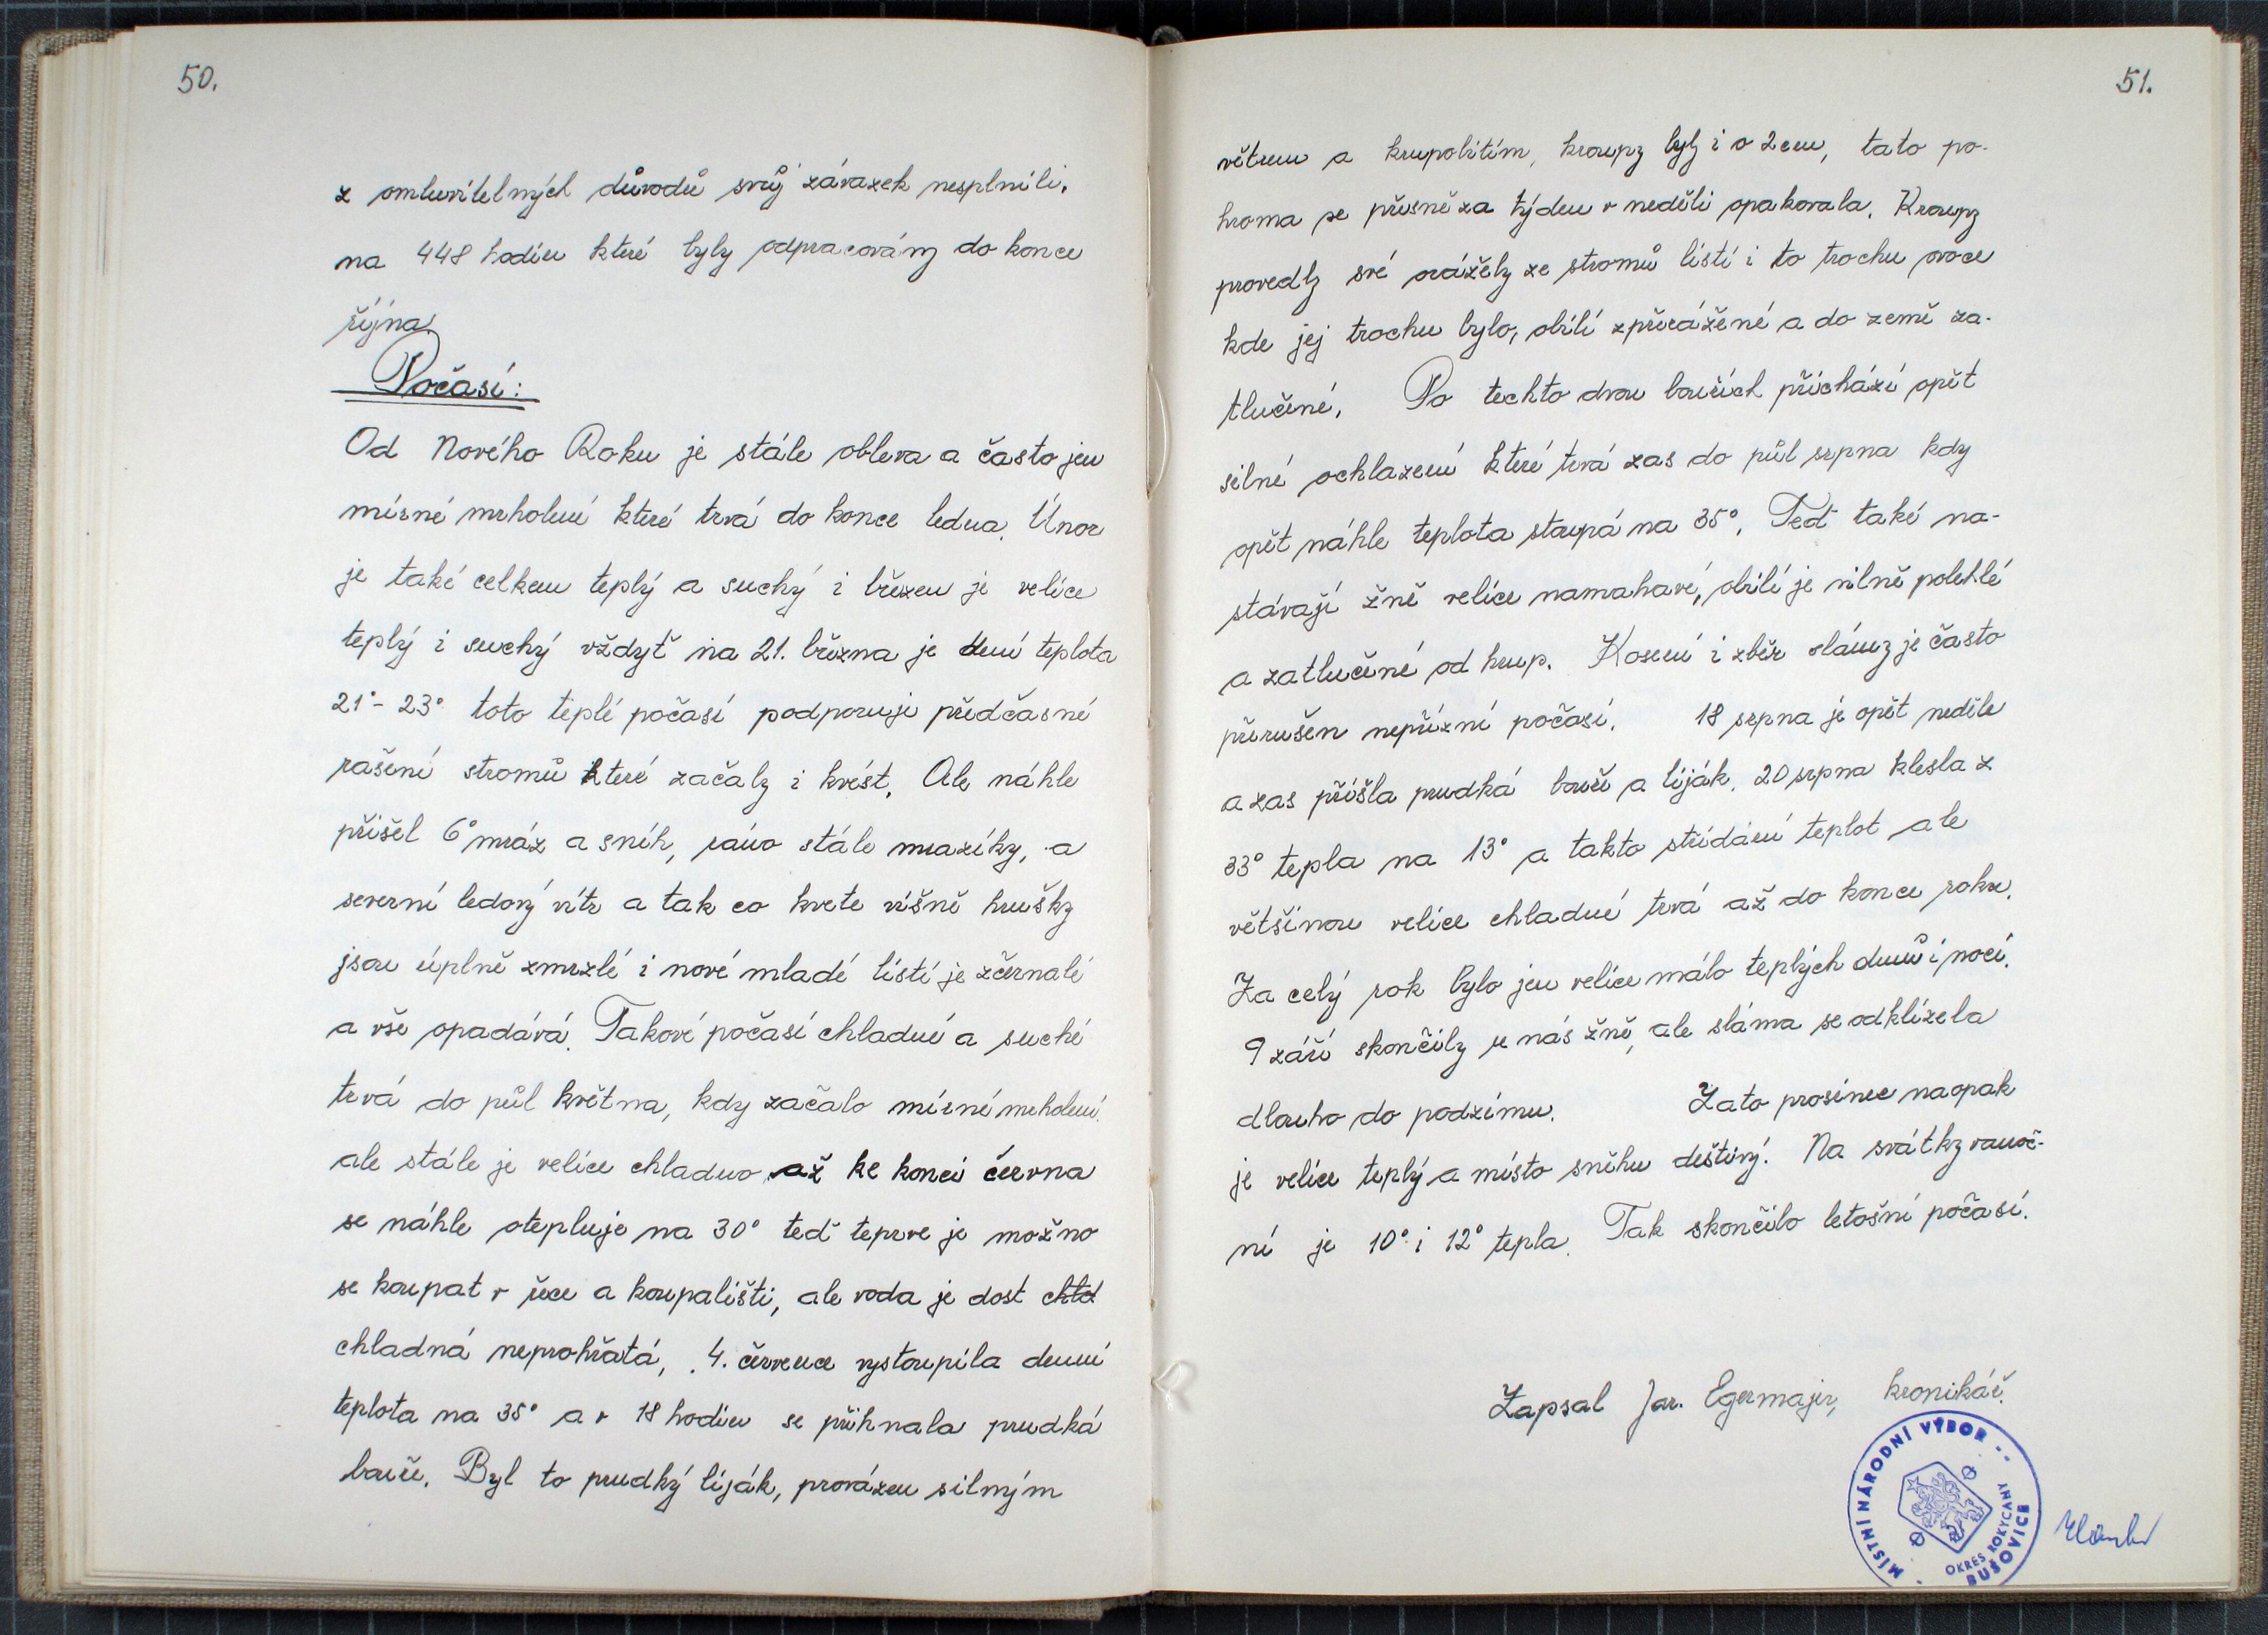 50.
z omluvitelných důvodů svůj závazek nesplnili.
na 448 hodin které byly odpracovány do konce
října.
Počasí:
Od Nového Roku je stále obleva a často jen
mírné mrholení které trvá do konce ledna. Únor
je také celkem teplý a suchý i březen je velice
teplý i suchý vždyť na 21. března je denní teplota
21°- 23° toto teplé počasí podporuje předčasné
rašení stromů které začaly i kvést. Ale náhle
přišel 6° mráz a sníh, ráno stále mrazíky, a
severní ledový vítr a tak co kvete višně hrušky
jsou úplně zmrzlé i nové mladé listí je zčernalé
a vše opadává. Takové počasí chladné a suché
trvá do půl května, kdy začalo mírné mrholení.
ale stále je velice chladno, až ke konci června
se náhle otepluje na 30° teď teprve je možno
se koupat v řece a koupališti, ale voda je dost chld
chladná neprohřátá, 4. července vystoupila denní
teplota na 35° a v 18 hodin se přihnala prudká
bouře. Byl to prudký liják, provázen silným
51.
větrem a krupobitím, kroupy byly i o 2cm, tato po-
hroma se přesně za týden v neděli opakovala. Kroupy
provedly své orážely ze stromů listí i to trochu ovoce
kde jej trochu bylo, obilí zpřerážené a do země za-
tlučené. Po techto dvou bouřích přichází opět
silné ochlazení které trvá zas do půl srpna kdy
opět náhle teplota stoupá na 35°. Teď také na-
stávají žně velice namahavé, obilí je silně polehlé
a zatlučené od krup. Kosení i zběr slámy je často
přerušen nepřízní počasí. 18 srpna je opět neděle
a zas přišla prudká bouře a liják. 20 srpna klesla z
33° tepla na 13° a takto střídání teplot ale
většinou velice chladné trvá až do konce roku.
Za celý rok bylo jen velice málo teplých dnů i nocí.
9 září skončily u nás žně, ale sláma se odklízela
dlouho do podzimu. Zato prosinec naopak
je velice teplý a místo sněhu deštivý. Na svátky vánoč-
ní je 10° i 12° tepla. Tak skončilo letošní počasí.
Zapsal Jar. Egermajer, kronikář.
MÍSTNÍ NÁRODNÍ VÝBOR
OKRES ROKYCANY
BUŠOVICE